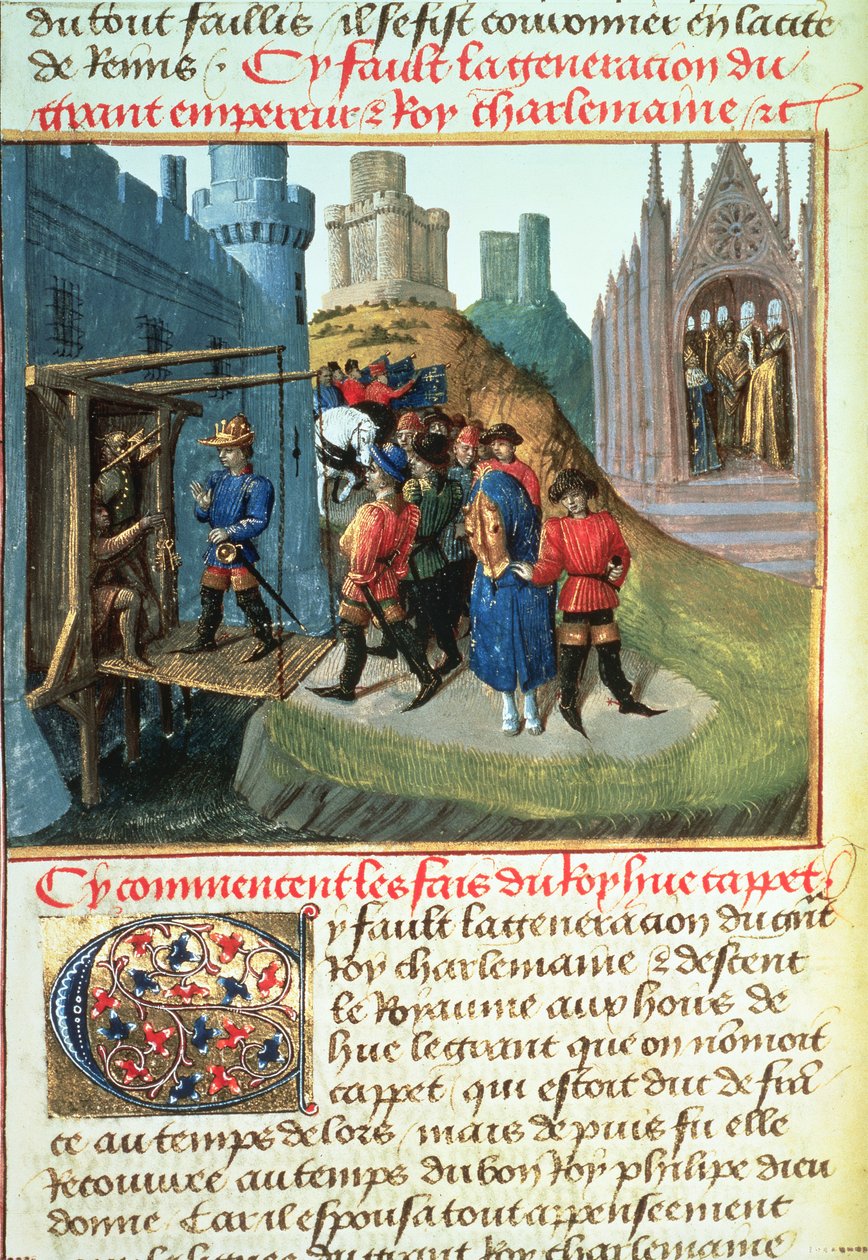 du tout faillis / il se fist couronner en la cite
de Reims . Cy fault la generacion du
grant empereur & Roy charlemaine / zc
Cy commencent les fais du Roy hue cappet .
Cy fault la generacion du grāt
Roy charlemaine & descent
le Royaume aux hoirs de
hue le grant que on nōmoit
cappet / qui estoit duc de frā
ce au temps de lors / mais depuis fu elle
Recouvree au temps du bon Roy philipe dieu
donne / Car il espousa tout appenseement
la lignee du grant Roy charlemaine